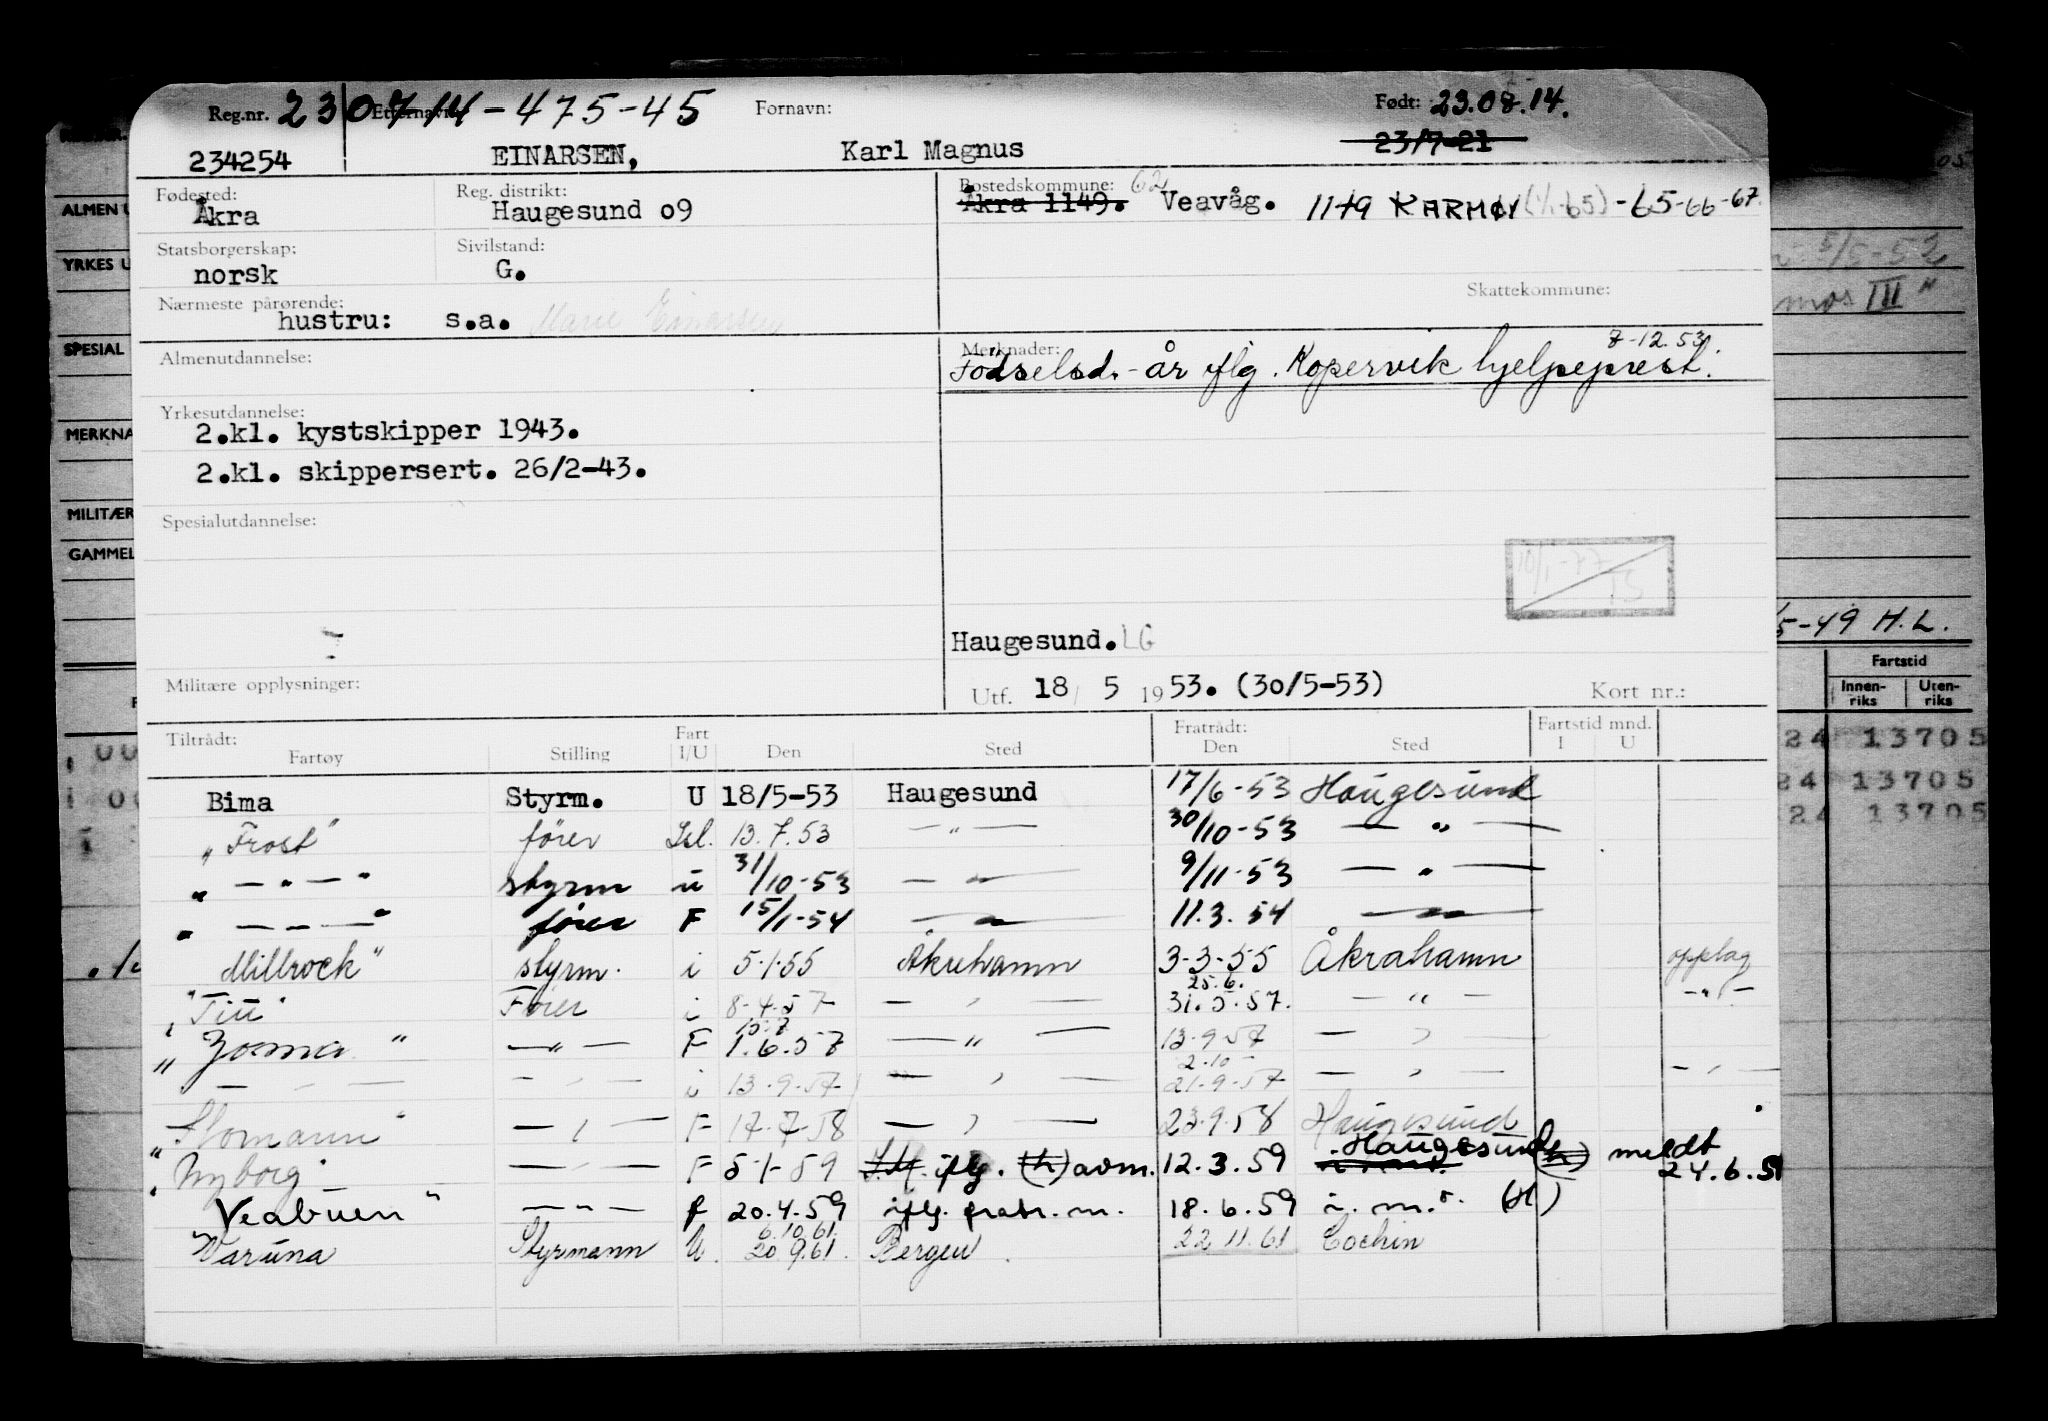 Reg.nr. 230714-475-45 Etternavn: Fornavn: Født: 23.08.14.
234254 EINARSEN, Karl Magnus 23/7-21
Fødested: Reg. distrikt: Bostedskommune: 62
Åkra Haugesund 09 Åkra 1149. Veavåg. 1149 KARMØY (1/1-65) -65-66-67.
Statsborgerskap: Sivilstand:
norsk G.
Nærmeste pårørende: Skattekommune:
hustru: s.a. Marie Einarsen
Almenutdannelse: Merknader: 7-12.53
Fødselsd.-år iflg. Kopervik hjelpeprest.
Yrkesutdannelse:
2.kl. kystskipper 1943.
2.kl. skippersert. 26/2-43.
Spesialutdannelse:
10/1-77
TS
Haugesund. LG
Militære opplysninger: Utf. 18/ 5 1953. (30/5-53) Kort nr.:
Tiltrådt: Fratrådt: Fartstid mnd.
Fartøy Stilling Fart I/U Den Sted Den Sted I U
Bima Styrm. U 18/5-53 Haugesund 17/6-53 Haugesund
"Frost" fører Isl. 13.7.53 — " — 30/10-53 — " —
" — " — " styrm u 31/10-53 — " — 9/11-53 — " —
" — " — " fører F 15/1-54 — " — 11.3.54 — " —
Millrock" styrm. i 5.1.55 Åkrehamn 3-3-55 Åkrahamn opplag
25.6.
"Titt" Fører i 8-4-57 — " — 31.5.57. — " — — " —
10.7
" Josma " — " — F 1.6.57 — " — 13.9.57 — " —
2.10
— " — — " — i 13.9.57 — " — 21.9.57 — " — — " —
" " — " — F 17.7.58 — " — 23.9.58 Haugesund
"Nyborg" — " — F 5-1-59 iflg. (h) avm. 12.3.59 Haugesund meldt 24.6.59
Veabuen" — " — f 20.4.59 iflg. fratr. m. 18.6.59 i. m. (H)
6.10.61.
Varuna Styrmann U. 20.9.61. Bergen. 22.11.61 Cochin
ALMEN U
YRKES U
SPESIAL
MERKNA
MILITÆR
GAMMEL
5/5-53
mos III"
/5-49 H.L.
Fartstid
Innen-riks Uten-riks
24 13705
24 13705
24 13705